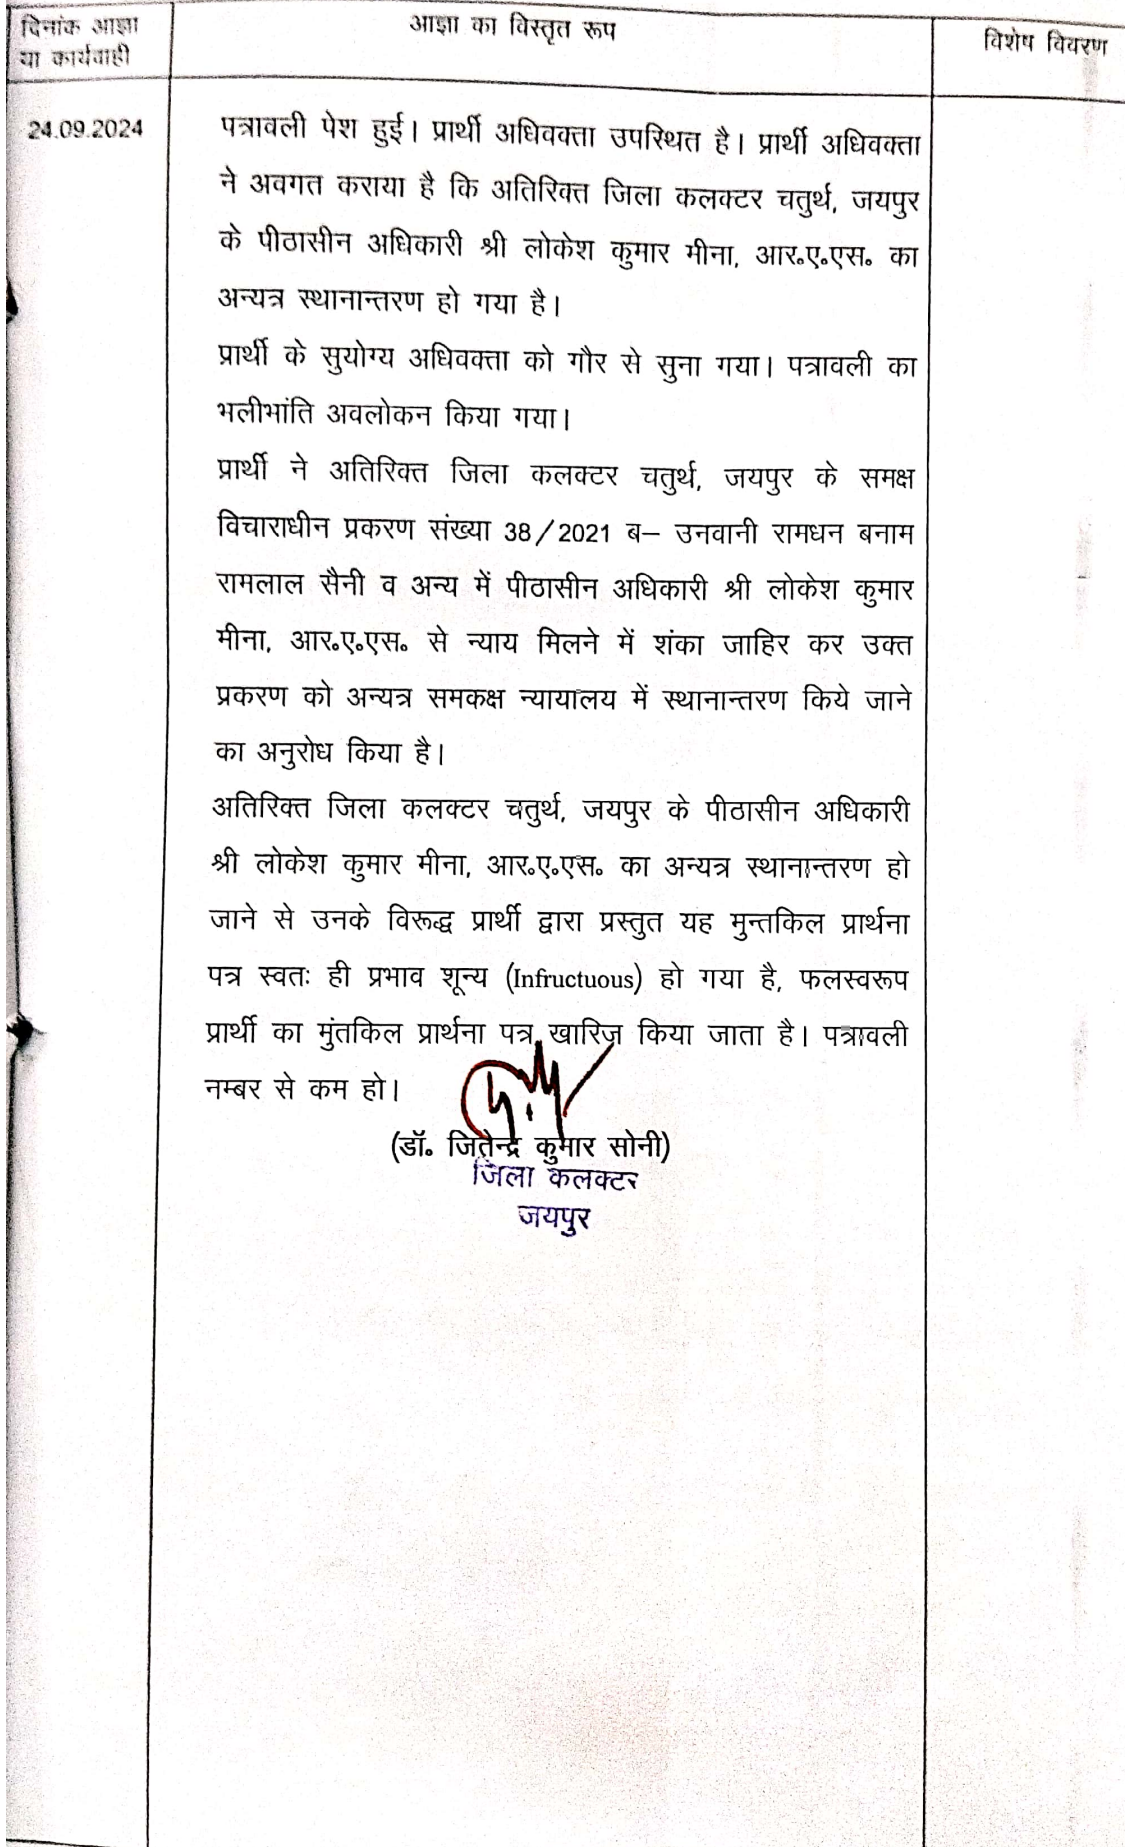 दिनांक आज्ञा
या कार्यवाही
आज्ञा का विस्तृत रूप
विशेष विवरण
24.09.2024
पत्रावली पेश हुई। प्रार्थी अधिवक्ता उपस्थित है। प्रार्थी अधिवक्ता
ने अवगत कराया है कि अतिरिक्त जिला कलक्टर चतुर्थ, जयपुर
के पीठासीन अधिकारी श्री लोकेश कुमार मीना, आर०ए०एस० का
अन्यत्र स्थानान्तरण हो गया है।
प्रार्थी के सुयोग्य अधिवक्ता को गौर से सुना गया। पत्रावली का
भलीभांति अवलोकन किया गया।
प्रार्थी ने अतिरिक्त जिला कलक्टर चतुर्थ, जयपुर के समक्ष
विचाराधीन प्रकरण संख्या 38/2021 ब– उनवानी रामधन बनाम
रामलाल सैनी व अन्य में पीठासीन अधिकारी श्री लोकेश कुमार
मीना, आर०ए०एस० से न्याय मिलने में शंका जाहिर कर उक्त
प्रकरण को अन्यत्र समकक्ष न्यायालय में स्थानान्तरण किये जाने
का अनुरोध किया है।
अतिरिक्त जिला कलक्टर चतुर्थ, जयपुर के पीठासीन अधिकारी
श्री लोकेश कुमार मीना, आर०ए०एस० का अन्यत्र स्थानान्तरण हो
जाने से उनके विरूद्ध प्रार्थी द्वारा प्रस्तुत यह मुन्तकिल प्रार्थना
पत्र स्वतः ही प्रभाव शून्य (Infructuous) हो गया है, फलस्वरूप
प्रार्थी का मुंतकिल प्रार्थना पत्र खारिज किया जाता है। पत्रावली
नम्बर से कम हो।
(डॉ० जितेन्द्र कुमार सोनी)
जिला कलक्टर
जयपुर